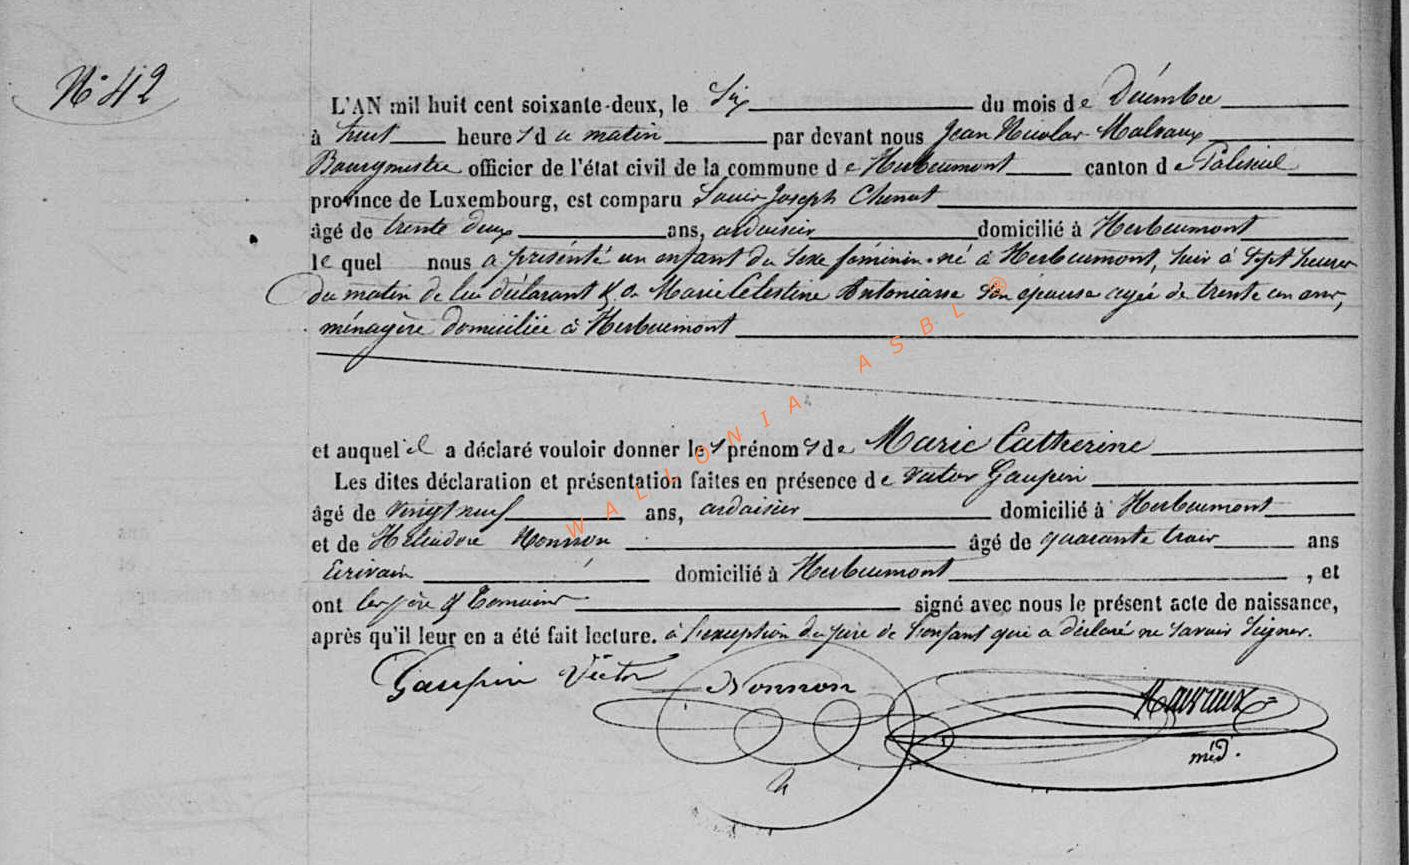 N° 42
L'AN mil huit cent soixante-deux, le Six du mois de Décembre
à huit heures du matin par devant nous Jean Nicolas Malvaux
Bourgmestre officier de l'état civil de la commune de Herbeumont canton de Paliseul
province de Luxembourg, est comparu Louis Joseph Chenot
âgé de trente deux ans, ardoisier domicilié à Herbeumont
lequel nous a présenté un enfant du sexe féminin né à Herbeumont, hier à sept heures
du matin de lui déclarant & de Marie Célestine Antoniasse son épouse agée de trente un ans,
ménagère domiciliée à Herbeumont
et auquel il a déclaré vouloir donner les prénoms de Marie Catherine
Les dites déclaration et présentation faites en présence de Victor Gaupin
âgé de vingt neuf ans, ardoisier domicilié à Herbeumont
et de Héliodore Nonnon âgé de quarante trois ans
Ecrivain domicilié à Herbeumont , et
ont les père & témoins signé avec nous le présent acte de naissance,
après qu'il leur en a été fait lecture. à l'exception du père de l'enfant qui a déclaré ne savoir signer.
Gaupin Victor Nonnon Malvaux
méd.
WALLONIA ASBL ®